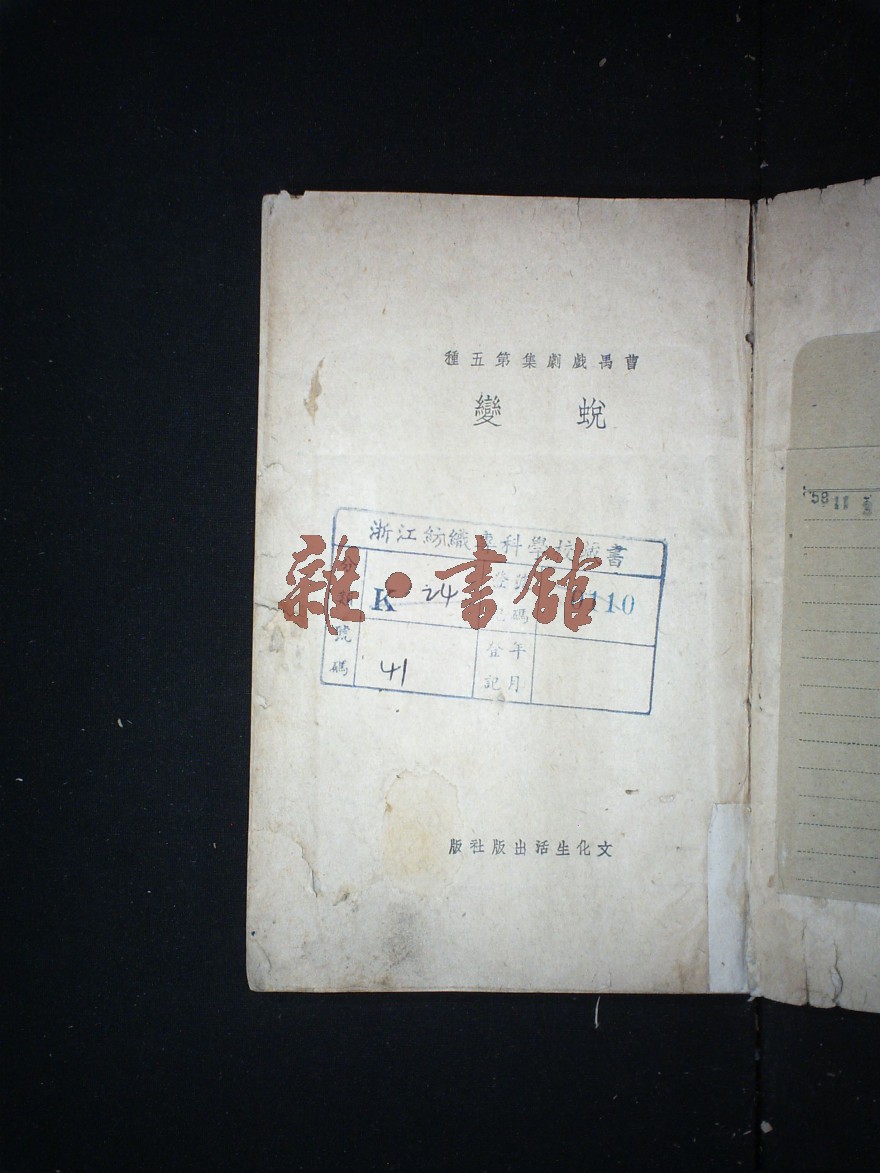 曹禺戲劇集第五種
蛻變
浙江紡織專科學校藏書
分類號碼
K 24
41
登記號碼
0110
登記年月
文化生活出版社版
雜·書館
'58 11